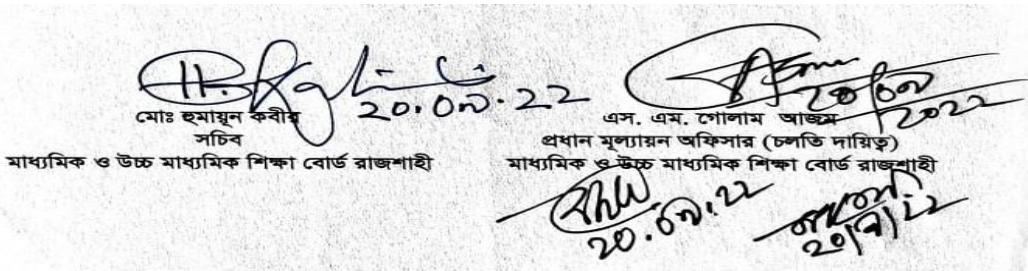 ২০.০৯.২২
মোঃ হুমায়ূন কবীর
সচিব
মাধ্যমিক ও উচ্চ মাধ্যমিক শিক্ষা বোর্ড রাজশাহী
২০ ০৯ ২০২২
এস. এম. গোলাম আজম
প্রধান মূল্যায়ন অফিসার (চলতি দায়িত্ব)
মাধ্যমিক ও উচ্চ মাধ্যমিক শিক্ষা বোর্ড রাজশাহী
২০.০৯.২২
২০/৯/২২